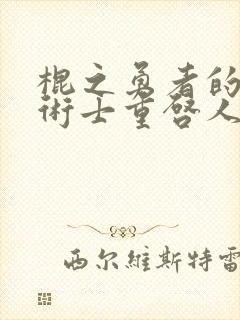 棍之勇者的
術士重啓人
西尔維斯特雷